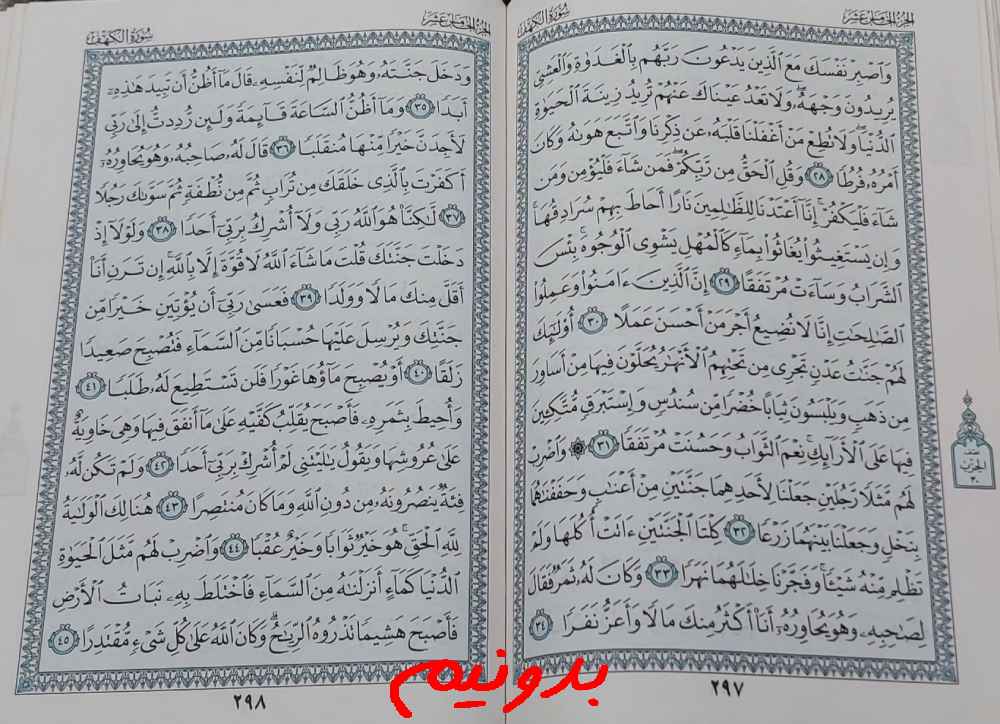 الجزء الخامس عشر
سورة الكهف
وَٱصْبِرْ نَفْسَكَ مَعَ ٱلَّذِينَ يَدْعُونَ رَبَّهُم بِٱلْغَدَوٰةِ وَٱلْعَشِىِّ
يُرِيدُونَ وَجْهَهُۥ ۖ وَلَا تَعْدُ عَيْنَاكَ عَنْهُمْ تُرِيدُ زِينَةَ ٱلْحَيَوٰةِ
ٱلدُّنْيَا ۖ وَلَا تُطِعْ مَنْ أَغْفَلْنَا قَلْبَهُۥ عَن ذِكْرِنَا وَٱتَّبَعَ هَوَىٰهُ وَكَانَ
أَمْرُهُۥ فُرُطًا ٢٨ وَقُلِ ٱلْحَقُّ مِن رَّبِّكُمْ ۖ فَمَن شَآءَ فَلْيُؤْمِن وَمَن
شَآءَ فَلْيَكْفُرْ ۚ إِنَّآ أَعْتَدْنَا لِلظَّٰلِمِينَ نَارًا أَحَاطَ بِهِمْ سُرَادِقُهَا ۚ
وَإِن يَسْتَغِيثُوا۟ يُغَاثُوا۟ بِمَآءٍ كَٱلْمُهْلِ يَشْوِى ٱلْوُجُوهَ ۚ بِئْسَ
ٱلشَّرَابُ وَسَآءَتْ مُرْتَفَقًا ٢٩ إِنَّ ٱلَّذِينَ ءَامَنُوا۟ وَعَمِلُوا۟
ٱلصَّٰلِحَٰتِ إِنَّا لَا نُضِيعُ أَجْرَ مَنْ أَحْسَنَ عَمَلًا ٣٠ أُو۟لَٰٓئِكَ
لَهُمْ جَنَّٰتُ عَدْنٍ تَجْرِى مِن تَحْتِهِمُ ٱلْأَنْهَٰرُ يُحَلَّوْنَ فِيهَا مِنْ أَسَاوِرَ
مِن ذَهَبٍ وَيَلْبَسُونَ ثِيَابًا خُضْرًا مِّن سُندُسٍ وَإِسْتَبْرَقٍ مُّتَّكِـِٔينَ
فِيهَا عَلَى ٱلْأَرَآئِكِ ۚ نِعْمَ ٱلثَّوَابُ وَحَسُنَتْ مُرْتَفَقًا ٣١ ۞ وَٱضْرِبْ
لَهُم مَّثَلًا رَّجُلَيْنِ جَعَلْنَا لِأَحَدِهِمَا جَنَّتَيْنِ مِنْ أَعْنَٰبٍ وَحَفَفْنَٰهُمَا
بِنَخْلٍ وَجَعَلْنَا بَيْنَهُمَا زَرْعًا ٣٢ كِلْتَا ٱلْجَنَّتَيْنِ ءَاتَتْ أُكُلَهَا وَلَمْ
تَظْلِم مِّنْهُ شَيْـًٔا ۚ وَفَجَّرْنَا خِلَٰلَهُمَا نَهَرًا ٣٣ وَكَانَ لَهُۥ ثَمَرٌ فَقَالَ
لِصَٰحِبِهِۦ وَهُوَ يُحَاوِرُهُۥٓ أَنَا۠ أَكْثَرُ مِنكَ مَالًا وَأَعَزُّ نَفَرًا ٣٤
نصف
الحزب
٣٠
٢٩٧
الجزء الخامس عشر
سورة الكهف
وَدَخَلَ جَنَّتَهُۥ وَهُوَ ظَالِمٌ لِّنَفْسِهِۦ قَالَ مَآ أَظُنُّ أَن تَبِيدَ هَٰذِهِۦٓ
أَبَدًا ٣٥ وَمَآ أَظُنُّ ٱلسَّاعَةَ قَآئِمَةً وَلَئِن رُّدِدتُّ إِلَىٰ رَبِّى
لَأَجِدَنَّ خَيْرًا مِّنْهَا مُنقَلَبًا ٣٦ قَالَ لَهُۥ صَاحِبُهُۥ وَهُوَ يُحَاوِرُهُۥٓ
أَكَفَرْتَ بِٱلَّذِى خَلَقَكَ مِن تُرَابٍ ثُمَّ مِن نُّطْفَةٍ ثُمَّ سَوَّىٰكَ رَجُلًا
٣٧ لَّٰكِنَّا۠ هُوَ ٱللَّهُ رَبِّى وَلَآ أُشْرِكُ بِرَبِّىٓ أَحَدًا ٣٨ وَلَوْلَآ إِذْ
دَخَلْتَ جَنَّتَكَ قُلْتَ مَا شَآءَ ٱللَّهُ لَا قُوَّةَ إِلَّا بِٱللَّهِ ۚ إِن تَرَنِ أَنَا۠
أَقَلَّ مِنكَ مَالًا وَوَلَدًا ٣٩ فَعَسَىٰ رَبِّىٓ أَن يُؤْتِيَنِ خَيْرًا مِّن
جَنَّتِكَ وَيُرْسِلَ عَلَيْهَا حُسْبَانًا مِّنَ ٱلسَّمَآءِ فَتُصْبِحَ صَعِيدًا
زَلَقًا ٤٠ أَوْ يُصْبِحَ مَآؤُهَا غَوْرًا فَلَن تَسْتَطِيعَ لَهُۥ طَلَبًا ٤١
وَأُحِيطَ بِثَمَرِهِۦ فَأَصْبَحَ يُقَلِّبُ كَفَّيْهِ عَلَىٰ مَآ أَنفَقَ فِيهَا وَهِىَ خَاوِيَةٌ
عَلَىٰ عُرُوشِهَا وَيَقُولُ يَٰلَيْتَنِى لَمْ أُشْرِكْ بِرَبِّىٓ أَحَدًا ٤٢ وَلَمْ تَكُن لَّهُۥ
فِئَةٌ يَنصُرُونَهُۥ مِن دُونِ ٱللَّهِ وَمَا كَانَ مُنتَصِرًا ٤٣ هُنَالِكَ ٱلْوَلَٰيَةُ
لِلَّهِ ٱلْحَقِّ ۚ هُوَ خَيْرٌ ثَوَابًا وَخَيْرٌ عُقْبًا ٤٤ وَٱضْرِبْ لَهُم مَّثَلَ ٱلْحَيَوٰةِ
ٱلدُّنْيَا كَمَآءٍ أَنزَلْنَٰهُ مِنَ ٱلسَّمَآءِ فَٱخْتَلَطَ بِهِۦ نَبَاتُ ٱلْأَرْضِ
فَأَصْبَحَ هَشِيمًا تَذْرُوهُ ٱلرِّيَٰحُ ۗ وَكَانَ ٱللَّهُ عَلَىٰ كُلِّ شَىْءٍ مُّقْتَدِرًا ٤٥
٢٩٨
بدونیم